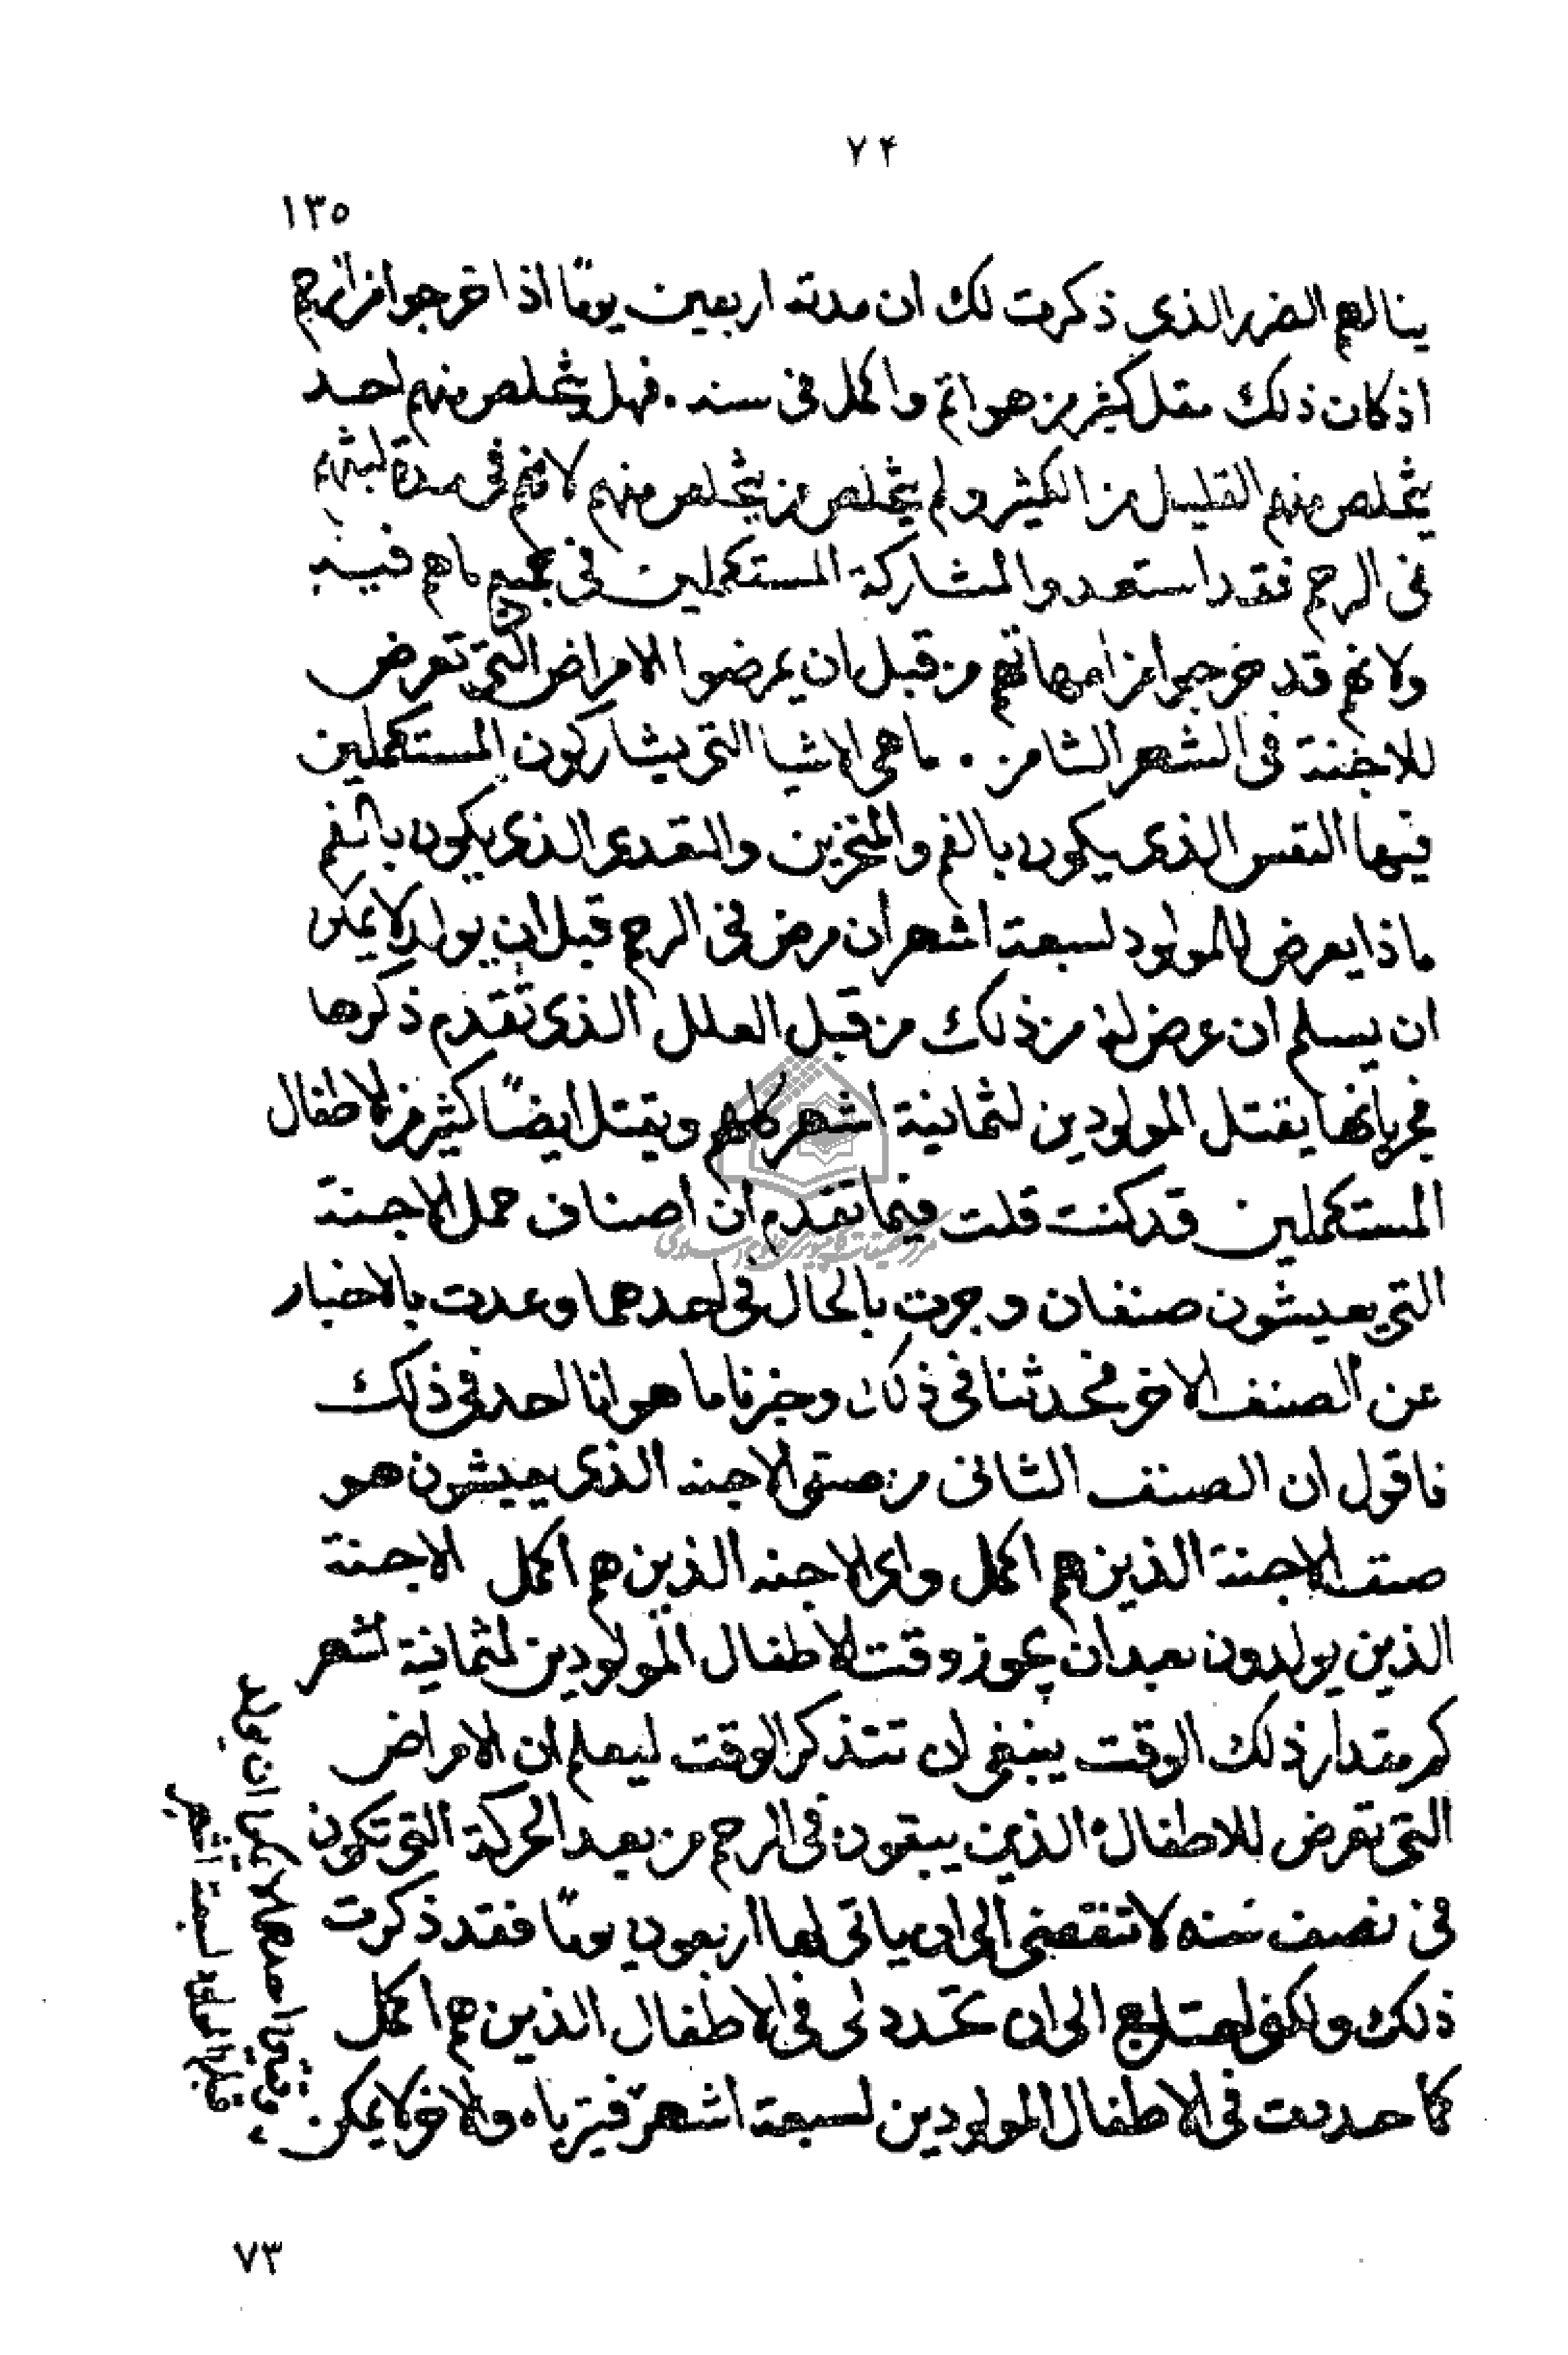 ٧٤
١٣٥
ينالهم الضرر الذى ذكرت لك ان مدته اربعين يومًا اذا خرجوا من الرحم
اذ كان ذلك مقل كثير من هو اتم واكمل فى سنه . فهل يتخلص منهم احد
يتخلص منهم القليل من الكثير ولم يتخلص من يتخلص منهم لانهم فى مدة لبثهم
فى الرحم فقد استعدوا لمشاركة المستكملين فى جميع ما هم فيه
ولانهم قد خرجوا من امهاتهم من قبل ان يمرضوا الامراض التى تعرض
للاجنة فى الشهر الثامن . ما هى الاشيا التى يشاركون المستكملين
فيها التنفس الذى يكون بالفم والمنخرين والتغدى الذى يكون بالفم
ماذا يعرض للمولود لسبعة اشهر ان مرض فى الرحم قبل ان يولد لا يمكن
ان يسلم ان عرض له من ذلك من قبل العلل الذى تقدم ذكرها
فخبر بانها يقتل المولودين لثمانية اشهر كلهم ويقتل ايضًا كثير من الاطفال
المستكملين قد كنت قلت فيما تقدم ان اصناف حمل الاجنة
التى يعيشون صنفان وجرت بالحال فى احدهما وعدت بالاخبار
عن الصنف الاخر فحدثنا فى ذلك وخبرنا ما هو انا احد فى ذلك
فاقول ان الصنف الثانى من صنفى الاجنه الذى يعيشون هو
صنف الاجنة الذين هم اكمل واى الاجنه الذين هم اكمل الاجنة
الذين يولدون بعد ان يجوز وقت الاطفال المولودين لثمانية اشهر
كم مقدار ذلك الوقت ينبغى ان تتذكر الوقت ليعلم ان الامراض
التى تعرض للاطفال الذين يبقون فى الرحم من بعد الحركة التى تكون
فى نصف سنه لا تنقضى الى ان ياتى لها اربعون يومًا فقد ذكرت
ذلك ولكنى احتاج الى ان تحدد لى فى الاطفال الذين هم اكمل
كما حددت فى الاطفال المولودين لسبعة اشهر والاخر لا يمكن
ان يولد
قبل المولود لسبعة اشهر
٧٣